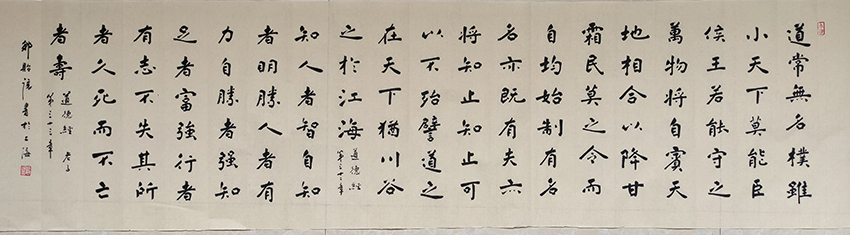 道常無名樸雖
小天下莫能臣
侯王若能守之
萬物將自賓天
地相合以降甘
霜民莫之令而
自均始制有名
名亦既有夫亦
將知止知止可
以不殆譬道之
在天下猶川谷
之於江海
道德經
知人者智自知
者明勝人者有
力自勝者強知
足者富強行者
有志不失其所
者久死而不亡
者壽
道德經 老子
書於上海